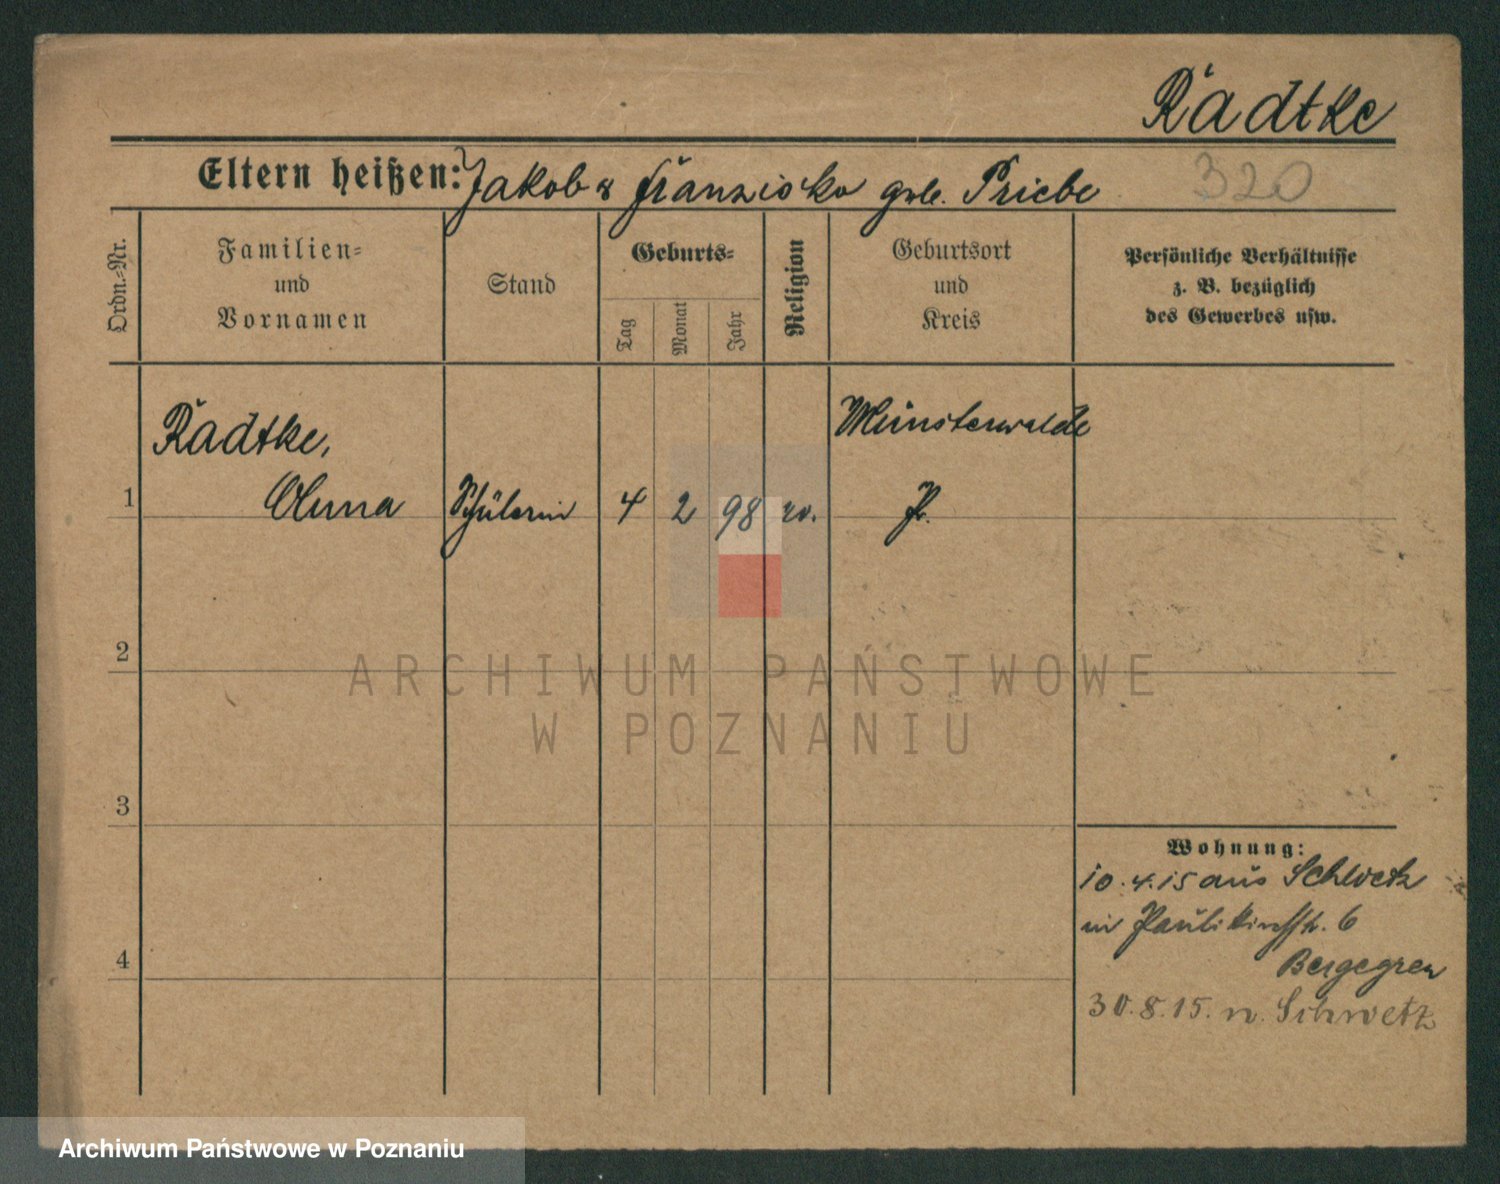 Radtke
Eltern heißen: Jakob & Franziska geb. Priebe
320
Ordn.-Nr.
Familien- und Vornamen
Stand
Geburts-
Tag
Monat
Jahr
Religion
Geburtsort und Kreis
Persönliche Verhältnisse
z. B. bezüglich
des Gewerbes usw.
Radtke,
Münsterwalde
1 Anna Schülerin 4 2 98 ev.
2
ARCHIWUM PAŃSTWOWE
W POZNANIU
3
Wohnung:
10.4.15 aus Schwetz
in Paulikirchstr. 6
4
30.8.15. n. Schwetz
Archiwum Państwowe w Poznaniu